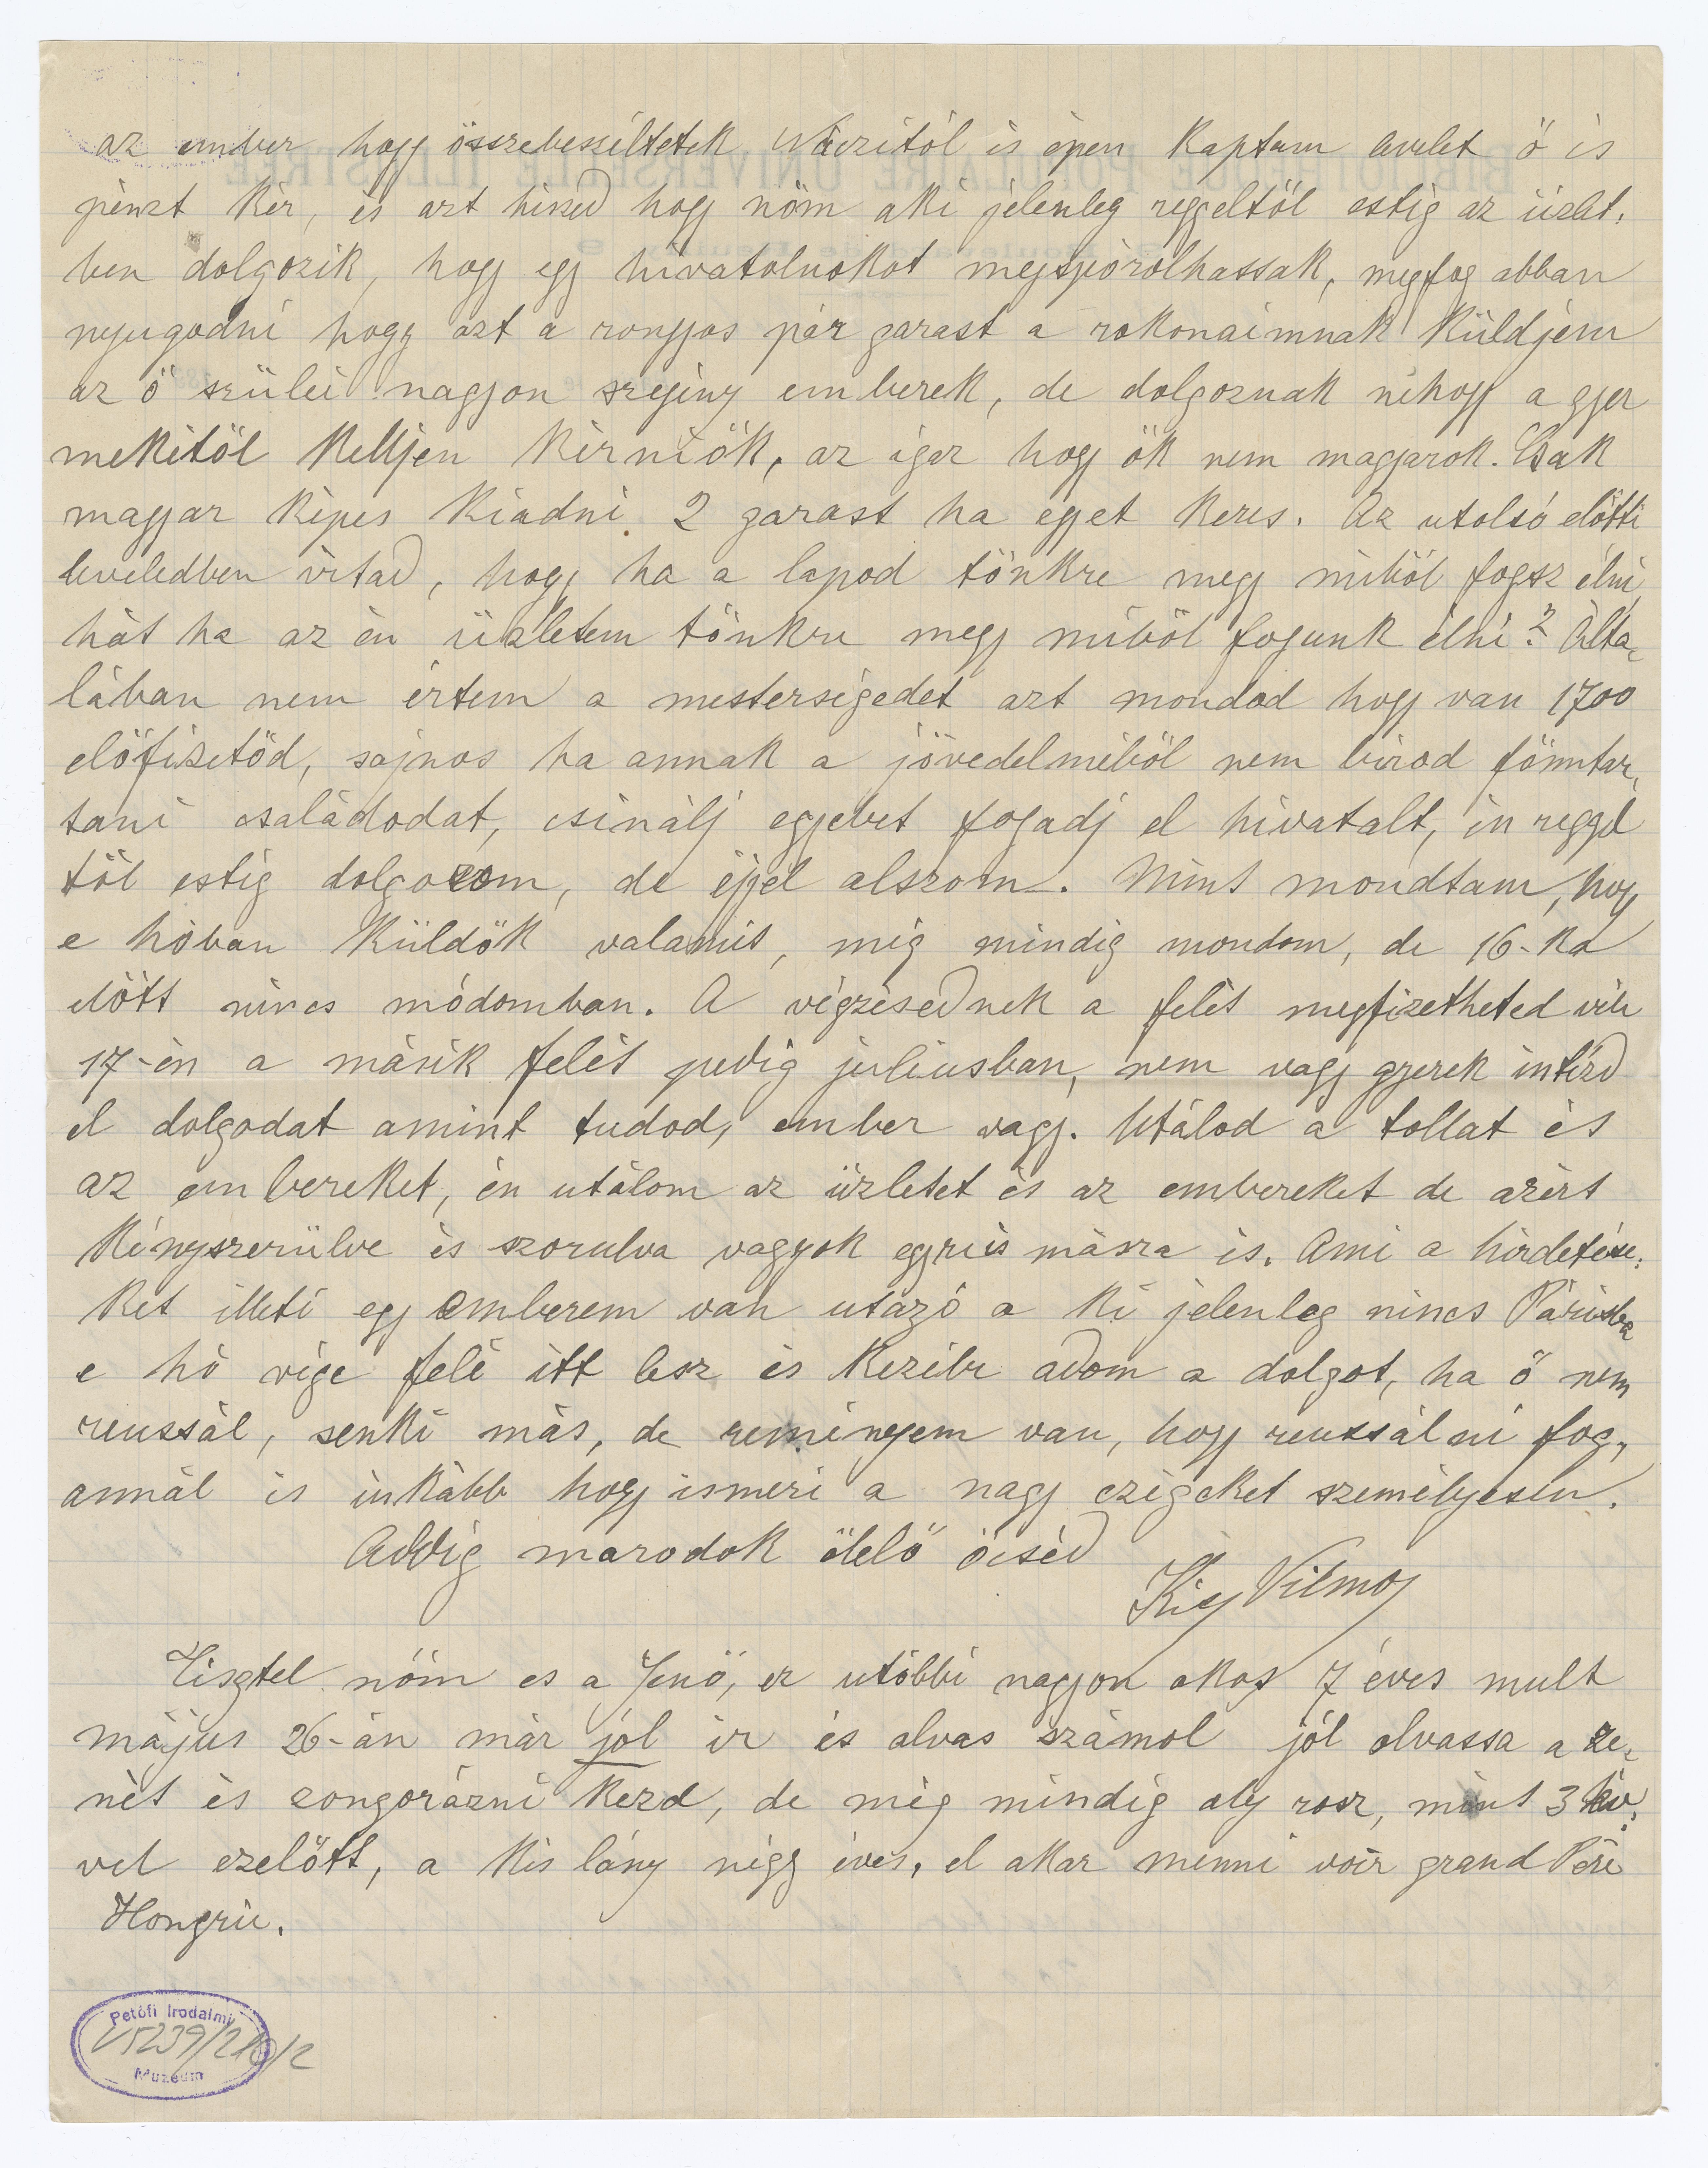 az ember hogy összebeszéltetek Náczitól is épen kaptam levelet ő is
pénzt kér, és azt hiszed hogy nőm aki jelenleg reggeltöl estig az üzlet,
ben dolgozik, hogy egy hivatalnokot megspórolhassak, megfog abban
nyugodni hogy azt a rongyos pár garast a rokonaimnak küldjem
az ő szülei nagyon szegény emberek, de dolgoznak néhogy a gyer
mekitöl kelljen kérniök, az igaz hogy ök nem magyarok. Csak
magyar képes kiadni 2 garast ha egyet keres. Az utolsó elötti
leveledben irtad, hogy ha a lapod tönkre megy miböl fogsz élni,
hát ha az én üzletem tönkre megy miböl fogunk élni? Álta,
lában nem értem a mesterségedet azt mondod hogy van 1700
elöfizetöd, sajnos ha annak a jövedelméböl nem birod fönntar,
tani családodat, csinálj egyebet fogadj el hivatalt, én reggel
töl estig dolgozom, de éjjel alszom. Mint mondtam, hogy
e hóban küldök valamit, még mindig mondom, de 16-ka
elött nincs módomban. A végzésednek a felét megfizetheted
17-én a másik felét pedig júliusban, nem vagy gyerek intézd
el dolgodat amint tudod, ember vagy. Utálod a tollat és
az embereket, én utálom az üzletet és az embereket de azért
kényszerülve és szorulva vagyok egyre is másra is. Ami a hirdetése,
ket illeti egy emberem van utazó a ki jelenleg nincs Párisba
e hó vége felé itt lesz és kezébe adom a dolgot, ha ő nem
reussál, senki más, de reményem van, hogy reussálni fog,
annál is inkább hogy ismeri a nagy czégeket személyesen.
Addig maradok ölelö öcséd
Kiss Vilmos
Tisztel nőm es a Jenö, ez utóbbi nagyon okos 7 éves mult
május 26-án már jol ir és olvas számol jól olvassa a ze,
nét és zongorázni kezd, de még mindig oly rosz, mint 3 év,
vel ezelött, a kis lány négy éves, el akar menni voir grand Père
Hongrie.
Petőfi Irodalmi
Múzeum
V5239/210/2